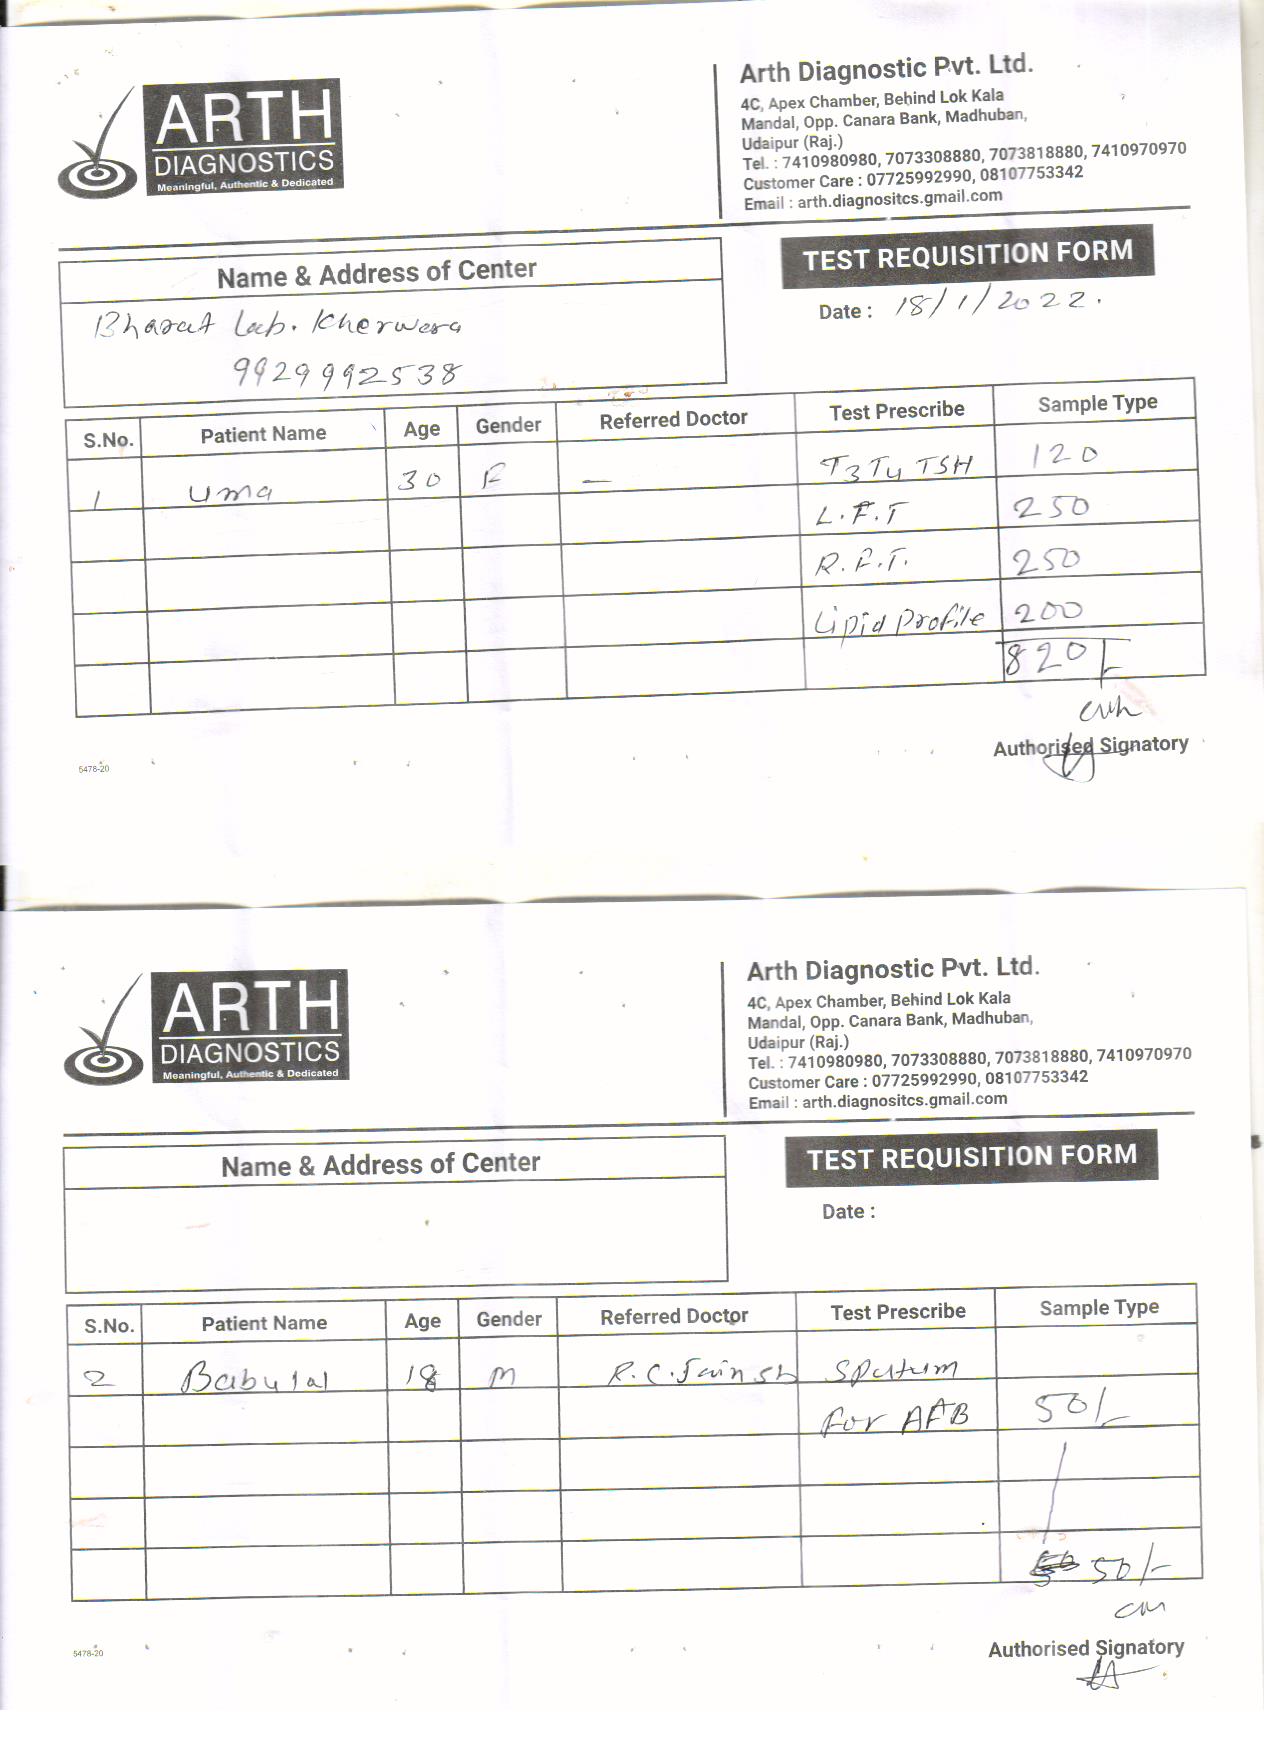 ARTH
DIAGNOSTICS
Meaningful, Authentic & Dedicated
Arth Diagnostic Pvt. Ltd.
4C, Apex Chamber, Behind Lok Kala
Mandal, Opp. Canara Bank, Madhuban,
Udaipur (Raj.)
Tel. : 7410980980, 7073308880, 7073818880, 7410970970
Customer Care : 07725992990, 08107753342
Email : arth.diagnositcs.gmail.com
Name & Address of Center
Bharat Lab. Kherwara
9929992538
TEST REQUISITION FORM
Date : 18/1/2022.
S.No. Patient Name Age Gender Referred Doctor Test Prescribe Sample Type
1 Uma 30 F — T3 T4 TSH 120
L.F.T 250
R.F.T. 250
Lipid Profile 200
820/-
Authorised Signatory
5478-20
ARTH
DIAGNOSTICS
Meaningful, Authentic & Dedicated
Arth Diagnostic Pvt. Ltd.
4C, Apex Chamber, Behind Lok Kala
Mandal, Opp. Canara Bank, Madhuban,
Udaipur (Raj.)
Tel. : 7410980980, 7073308880, 7073818880, 7410970970
Customer Care : 07725992990, 08107753342
Email : arth.diagnositcs.gmail.com
Name & Address of Center
TEST REQUISITION FORM
Date :
S.No. Patient Name Age Gender Referred Doctor Test Prescribe Sample Type
2 Babulal 18 M R.C. Jain Sputum
For AFB 50/-
50/-
Authorised Signatory
5478-20